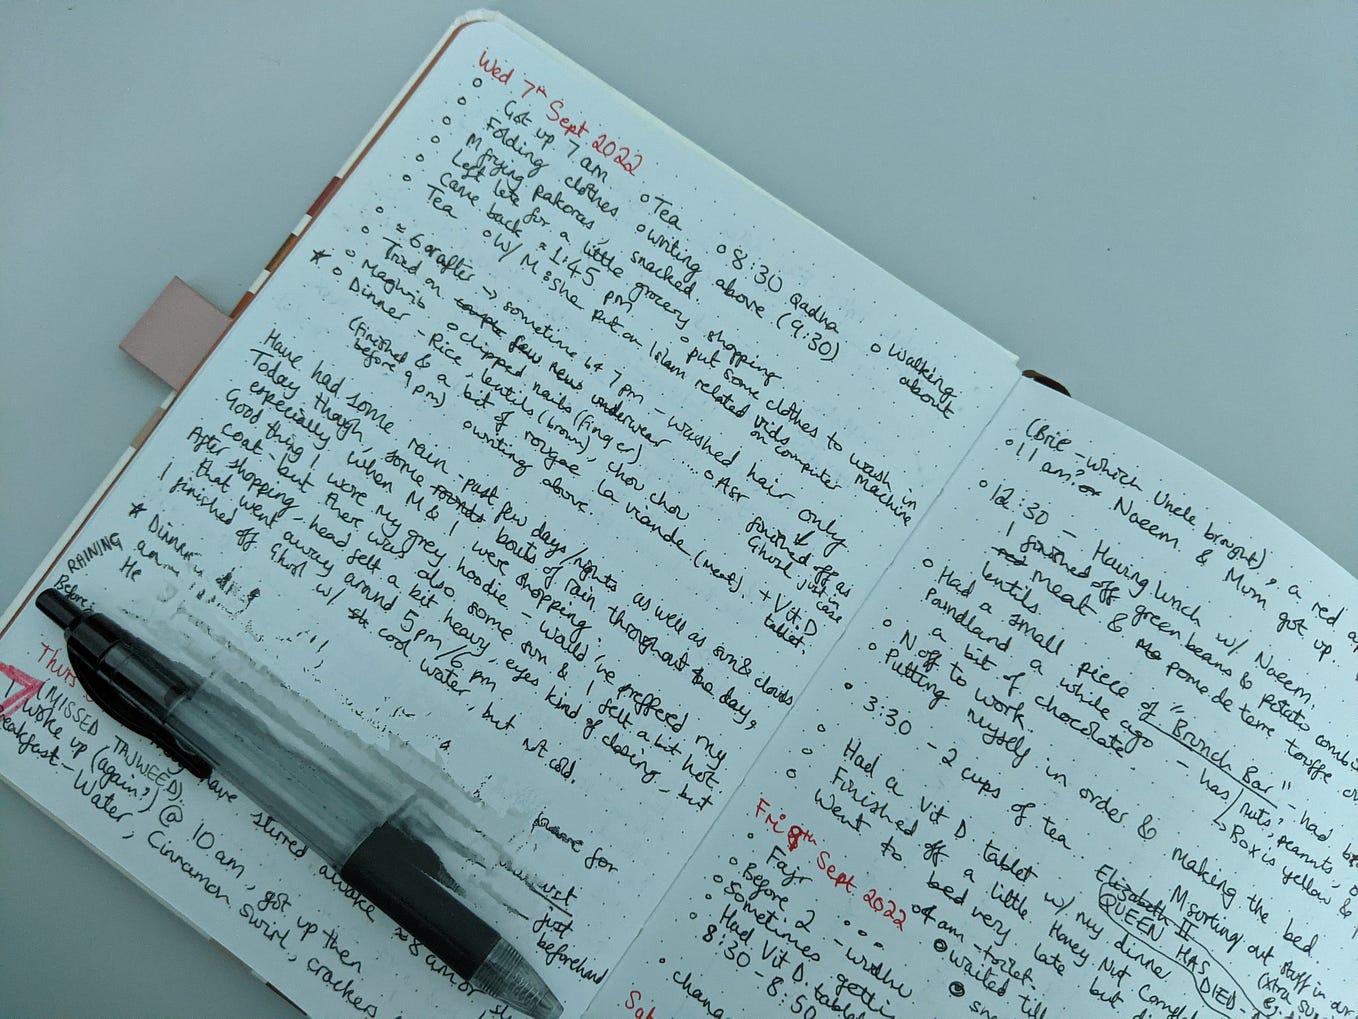 Wed 7th Sept 2022
Got up 7 am
Folding clothes
Tea
8:30 Qadha
M frying pakoras, snacked.
writing above (9:30)
Walking about
Left late for a little grocery shopping
Came back ≈ 1:45 pm
put some clothes to wash in machine
Tea
W/ M & she put on Islam related vids on computer
≈ 6 or after → sometime b4 7pm – washed hair only
Tried on few new underwear .... Asr
finished off as Ghusl just in case
Maghrib
clipped nails (finger)
Dinner – Rice, lentils (brown), chou chou
& a bit of rougae la viande (meat). + Vit. D tablet.
(Finished before 9 pm)
writing above.
Have had some rain – past few days/nights as well as sun & clouds
Today though, some bouts of rain throughout the day,
especially when M & I were shopping.
Good thing I wore my grey hoodie – would've preffered my
coat – but there was also some sun & I felt a bit hot.
After shopping, head felt a bit heavy, eyes kind of closing, but
that went away around 5pm/6 pm
I finished off Ghusl w/ cool water, but not cold.
Dinner
RAINING
He
for
just beforehand
Thurs
(MISSED TAJWEED).
have stirred awake ≈ 8 am or
I woke up (again?) @ 10 am, got up then
Breakfast – Water, Cinnamon swirl, crackers
(Brie – which Uncle brought), a red
11 am Naeem & Mum got up.
12:30 – Having lunch w/ Naeem.
I finished off green beans & potato
meat & pomme de terre touffe
lentils.
Had a small piece of "Brunch Bar" – had
Poundland a while ago – has nuts, peanuts,
a bit of chocolate
Box is yellow &
N off to work
Putting myself in order & making the bed.
M sorting out stuff in
3:30 – 2 cups of tea
Had a Vit D. tablet w/ my dinner
Finished off a little Honey Nut
Went to bed very late but
Elizabeth II
QUEEN HAS DIED
Fri 9th Sept 2022
Fajr ...
4 am – toilet.
waited till
Before 2 – write
Sometimes
Had Vit D. tablet
8:30 – 8:50